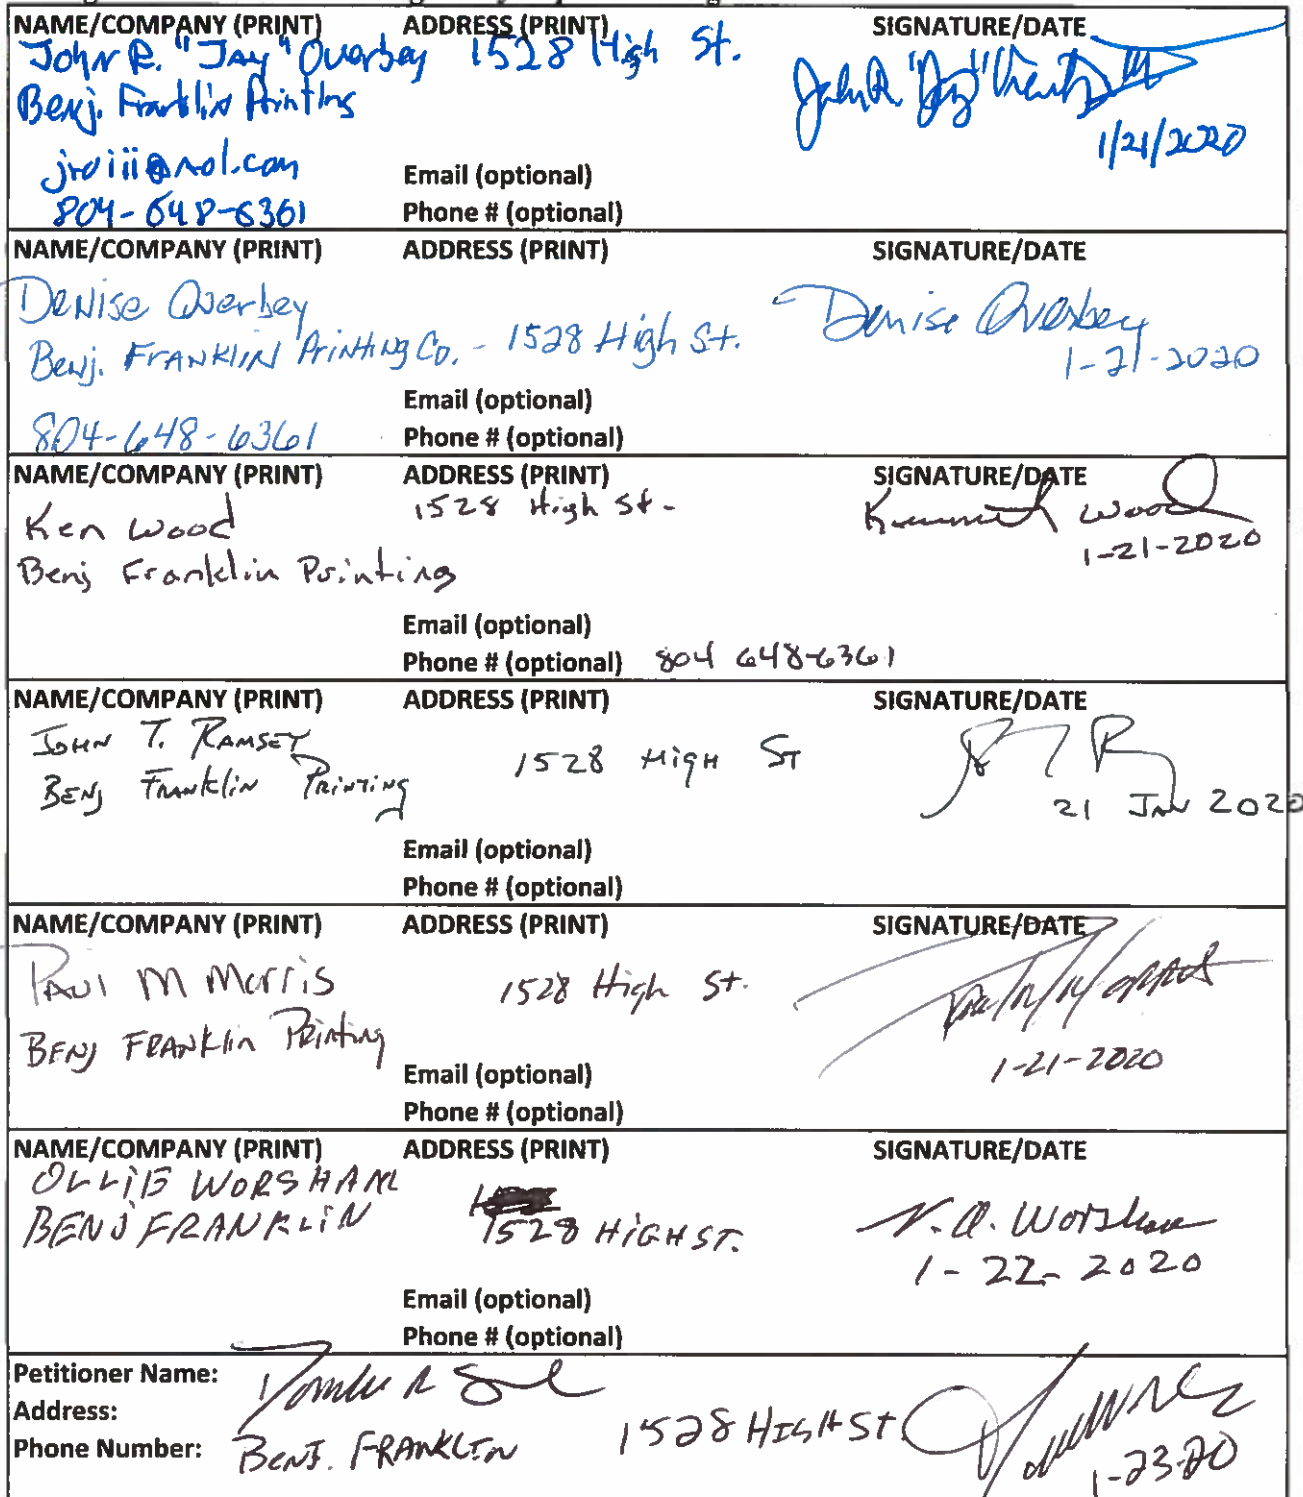 NAME/COMPANY (PRINT) ADDRESS (PRINT) SIGNATURE/DATE
John R. "Jay" Overbey 1528 High St.
Benj. Franklin Printing
1/21/2020
jroiii@aol.com Email (optional)
804-648-6361 Phone # (optional)
NAME/COMPANY (PRINT) ADDRESS (PRINT) SIGNATURE/DATE
Denise Overbey Denise Overbey
Benj. FRANKLIN Printing Co. - 1528 High St. 1-21-2020
Email (optional)
804-648-6361 Phone # (optional)
NAME/COMPANY (PRINT) ADDRESS (PRINT) SIGNATURE/DATE
Ken Wood 1528 High St. Kenneth Wood
Benj Franklin Printing 1-21-2020
Email (optional)
Phone # (optional) 804 648-6361
NAME/COMPANY (PRINT) ADDRESS (PRINT) SIGNATURE/DATE
JOHN T. RAMSEY 1528 HIGH ST
BENJ FRANKLIN PRINTING 21 JAN 2020
Email (optional)
Phone # (optional)
NAME/COMPANY (PRINT) ADDRESS (PRINT) SIGNATURE/DATE
PAUL M Morris 1528 High St.
BENJ FRANKLIN Printing 1-21-2020
Email (optional)
Phone # (optional)
NAME/COMPANY (PRINT) ADDRESS (PRINT) SIGNATURE/DATE
OLLIE WORSHAM
BENJ FRANKLIN 1528 HIGH ST. N.O. Worsham
1-22-2020
Email (optional)
Phone # (optional)
Petitioner Name:
Address:
Phone Number: BENJ. FRANKLIN 1528 HIGH ST
1-23-20